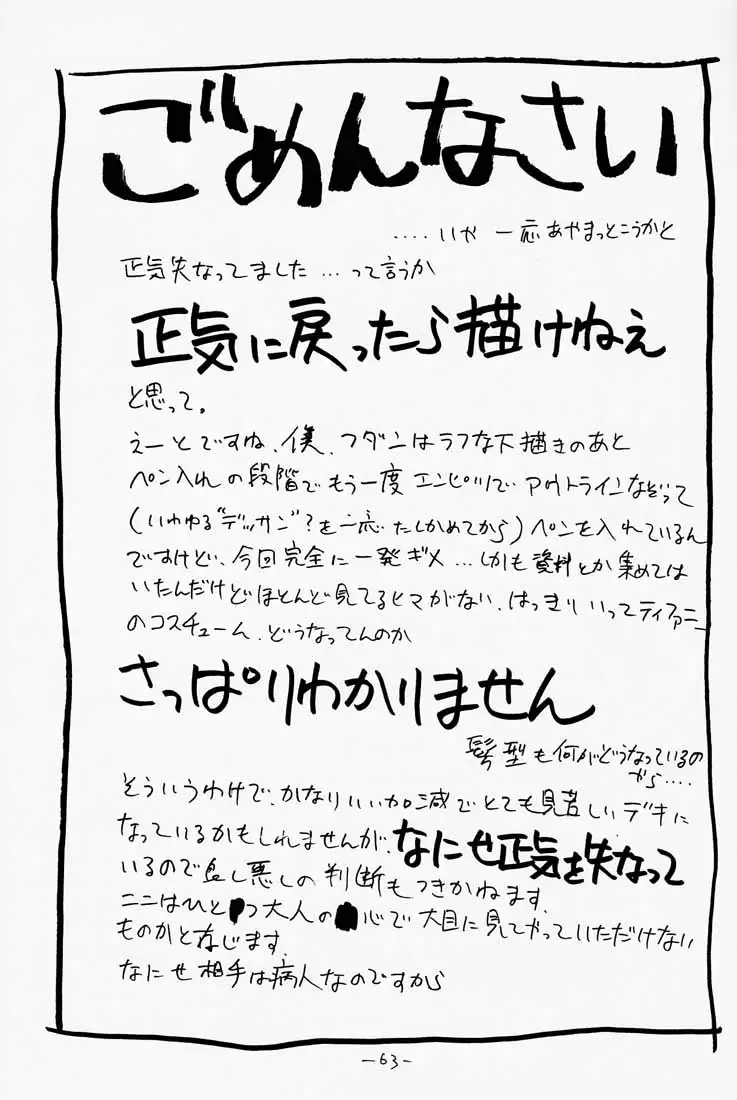 ごめんなさい
....いや 一応あやまっとこうかと
正気失なってました...って言うか
正気に戻ったら描けねぇ
と思って。
えーとですね、僕、フダンはラフな下描きのあと
ペン入れの段階でもう一度エンピツでアウトラインなぞって
(いわゆる"デッサン"?を一応たしかめてから)ペンを入れているん
ですけど、今回完全に一発ギメ...しかも資料とか集めては
いたんだけどほとんど見てるヒマがない、はっきりいってティファニー
のコスチューム、どうなってんのか
さっぱりわかりません
髪型も何がどうなっているの
やら....
そういうわけで、かなりいい加減でとても見苦しいデキに
なっているかもしれませんが、なにせ正気を失なって
いるので良し悪しの判断もつきかねます、
ここはひとつ大人の心で大目に見てやっていただけない
ものかと存じます、
なにせ相手は病人なのですから
-63-